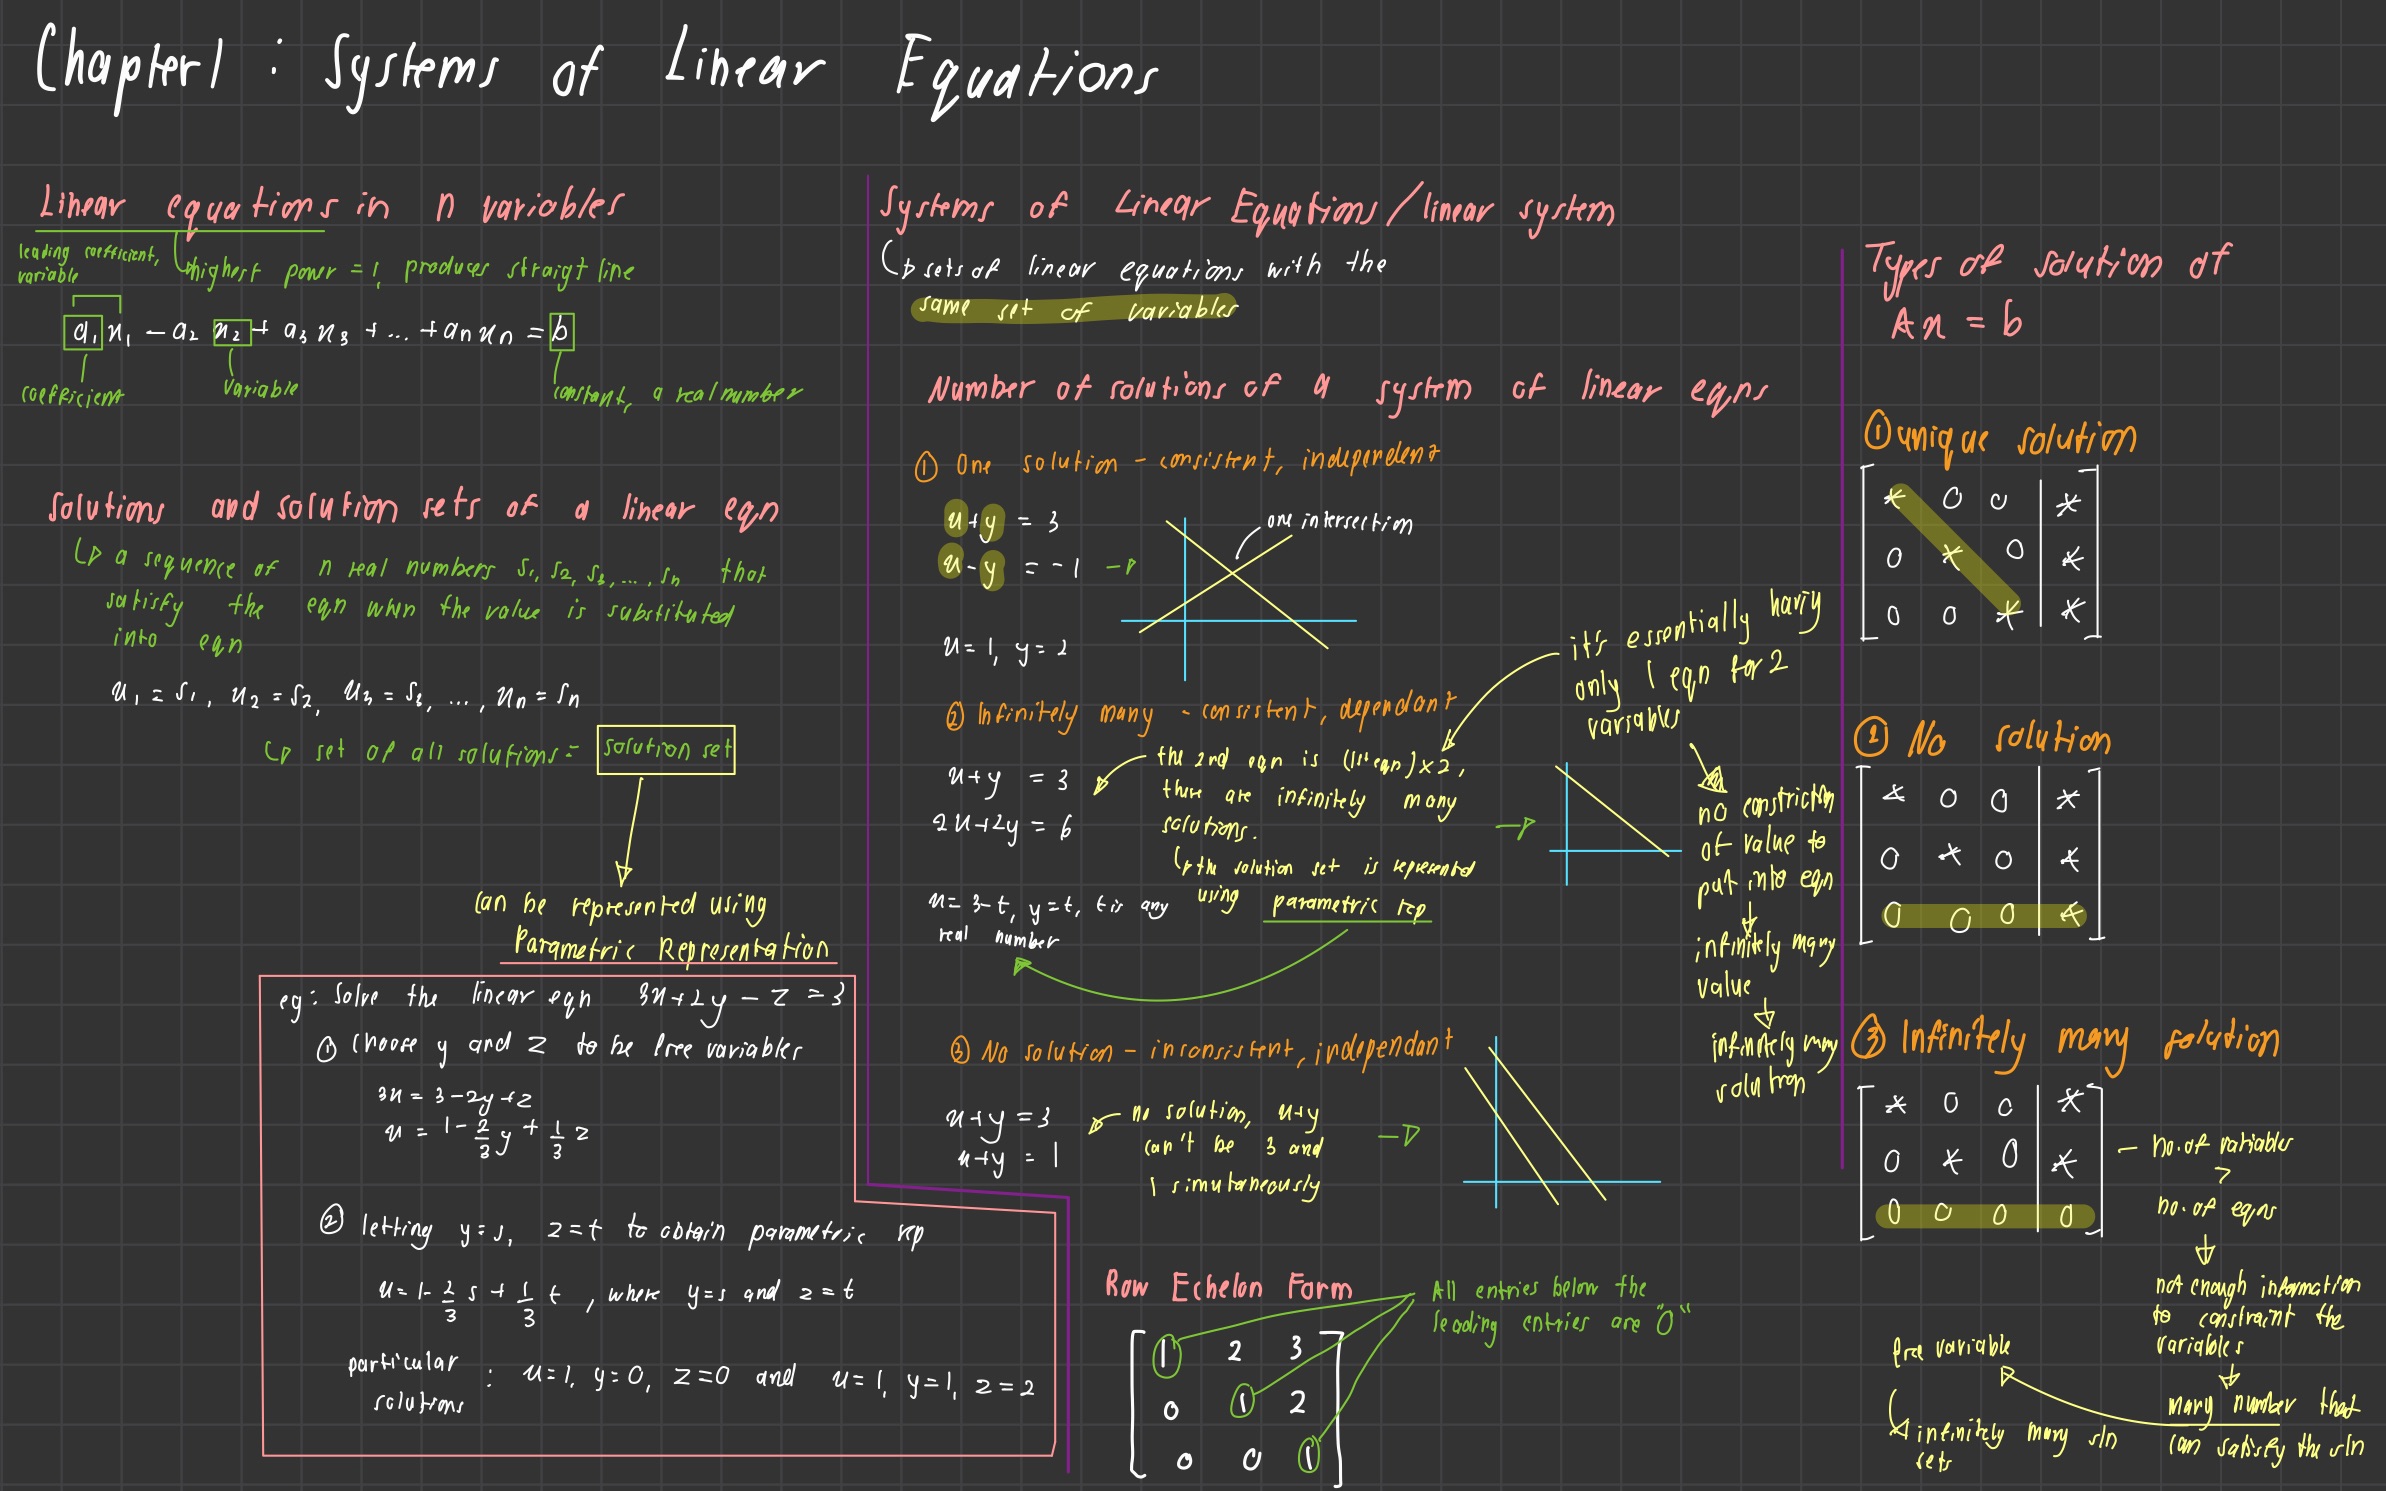 Chapter 1 : Systems of Linear Equations
Linear equations in n variables
leading coefficient,
variable
highest power = 1, produces straigt line
a₁x₁ - a₂x₂ + a₃x₃ + ... + aₙxₙ = b
coefficient
variable
constant, a real number
Solutions and solution sets of a linear eqn
a sequence of n real numbers s₁, s₂, s₃, ..., sₙ that
satisfy the eqn when the value is substituted
into eqn
x₁ = s₁, x₂ = s₂, x₃ = s₃, ..., xₙ = sₙ
set of all solutions = solution set
can be represented using
Parametric Representation
eg: Solve the linear eqn 3x+2y - z = 3
① choose y and z to be free variables
3x = 3 - 2y + z
x = 1 - 2/3 y + 1/3 z
② letting y=s, z=t to obtain parametric rep
x = 1 - 2/3 s + 1/3 t , where y=s and z=t
particular
solutions : x=1, y=0, z=0 and x=1, y=1, z=2
Systems of Linear Equations / linear system
sets of linear equations with the
same set of variables
Number of solutions of a system of linear eqns
① One solution - consistent, independent
x+y = 3
x-y = -1
one intersection
x=1, y=2
② Infinitely many - consistent, dependant
it's essentially having
only 1 eqn for 2
variables
the 2nd eqn is (1st eqn) x 2,
there are infinitely many
solutions.
the solution set is represented
using parametric rep
x+y = 3
2x+2y = 6
x= 3-t, y=t, t is any
real number
no constriction
of value to
put into eqn
infinitely many
value
infinitely many
solution
③ No solution - inconsistent, independant
x+y = 3
x+y = 1
no solution, x+y
can't be 3 and
1 simutaneously
Row Echelon Form
1 2 3
0 1 2
0 0 1
All entries below the
leading entries are "0"
Types of solution of
Ax = b
① unique solution
* 0 0 | *
0 * 0 | *
0 0 * | *
② No solution
* 0 0 | *
0 * 0 | *
0 0 0 | *
③ Infinitely many solution
* 0 0 | *
0 * 0 | *
0 0 0 | 0
no. of variables
>
no. of eqns
not enough information
to constraint the
variables
many number that
can satisfy the sln
free variable
infinitely many sln
sets